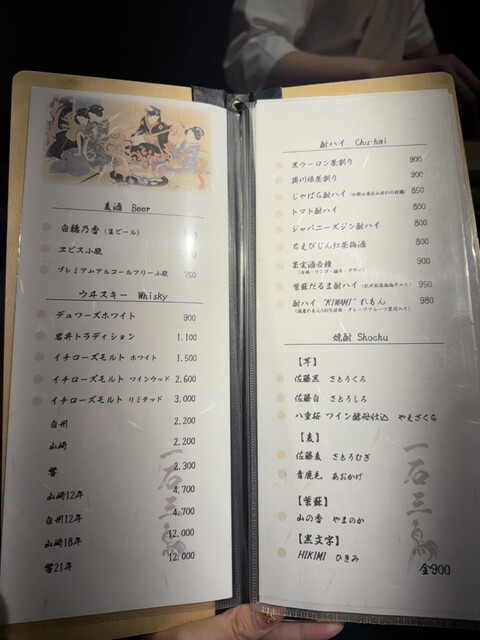 麦酒 Beer
白穂乃香 (生ビール)
ヱビス小瓶
プレミアムアルコールフリー小瓶 750
ウヰスキー Whisky
デュワーズホワイト 900
岩井トラディション 1,100
イチローズモルト ホワイト 1,500
イチローズモルト ワインウッド 2,600
イチローズモルト リミテッド 3,000
白州 2,200
山崎 2,200
響 2,300
山崎12年 4,700
白州12年 4,700
山崎18年 12,000
響21年 12,000
一石三鳥
酎ハイ Chu-hai
黒ウーロン茶割り 900
掛川緑茶割り 900
じゃばら酎ハイ 850
トマト酎ハイ 800
ジャパニーズジン酎ハイ 800
ちえびじん紅茶梅酒 800
果実酒各種 900
紫蘇だるま酎ハイ 950
酎ハイ "KIWAMI" れもん 980
焼酎 Shochu
【芋】
佐藤黒 さとうくろ
佐藤白 さとうしろ
八重桜 ツイン酵母仕込 やえざくら
【麦】
佐藤麦 さとうむぎ
青鹿毛 あおかげ
【紫蘇】
山の香 やまのか
【黒文字】
HIKIMI ひきみ
全900
一石三鳥